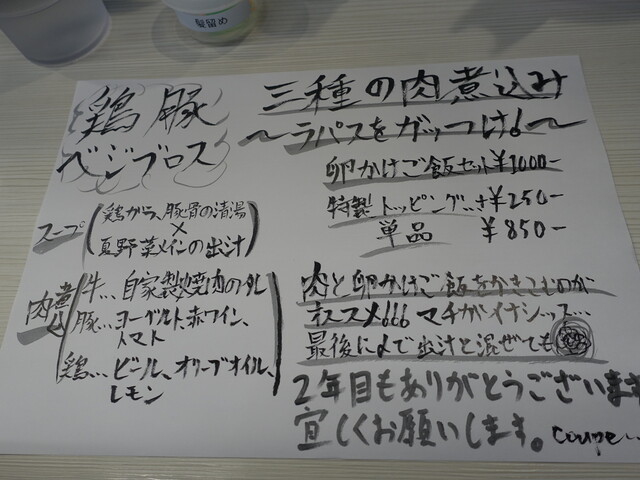 髪留め
鶏豚
ベジブロス
スープ
鶏がら、豚骨の清湯
×
夏野菜メインの出汁
肉煮込
牛…自家製焼肉のタレ
豚…ヨーグルト、赤ワイン、
トマト
鶏…ビール、オリーブオイル、
レモン
三種の肉煮込み
〜ラパスをガッつけ!〜
卵かけご飯セット¥1000-
特製トッピング…+¥250-
単品 ¥850-
肉と卵かけご飯をかきこむのが
オススメ!!! マチガイナシッス…
最後に〆で出汁と混ぜても
2年目もありがとうございます
宜しくお願いします。coupe…